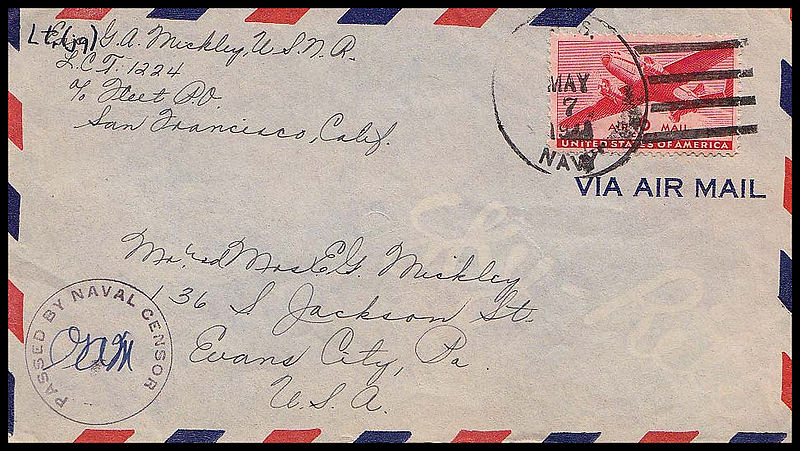 Lt(jg) G.A. Mickley, U.S.N.R.
L.C.T. 1224
c/o Fleet P.O.
San Francisco, Calif.
MAY
7
NAVY
AIR MAIL
UNITED STATES OF AMERICA
VIA AIR MAIL
Mr. and Mrs. E.G. Mickley
136 S. Jackson St.
Evans City, Pa.
U.S.A.
PASSED BY NAVAL CENSOR
GAM